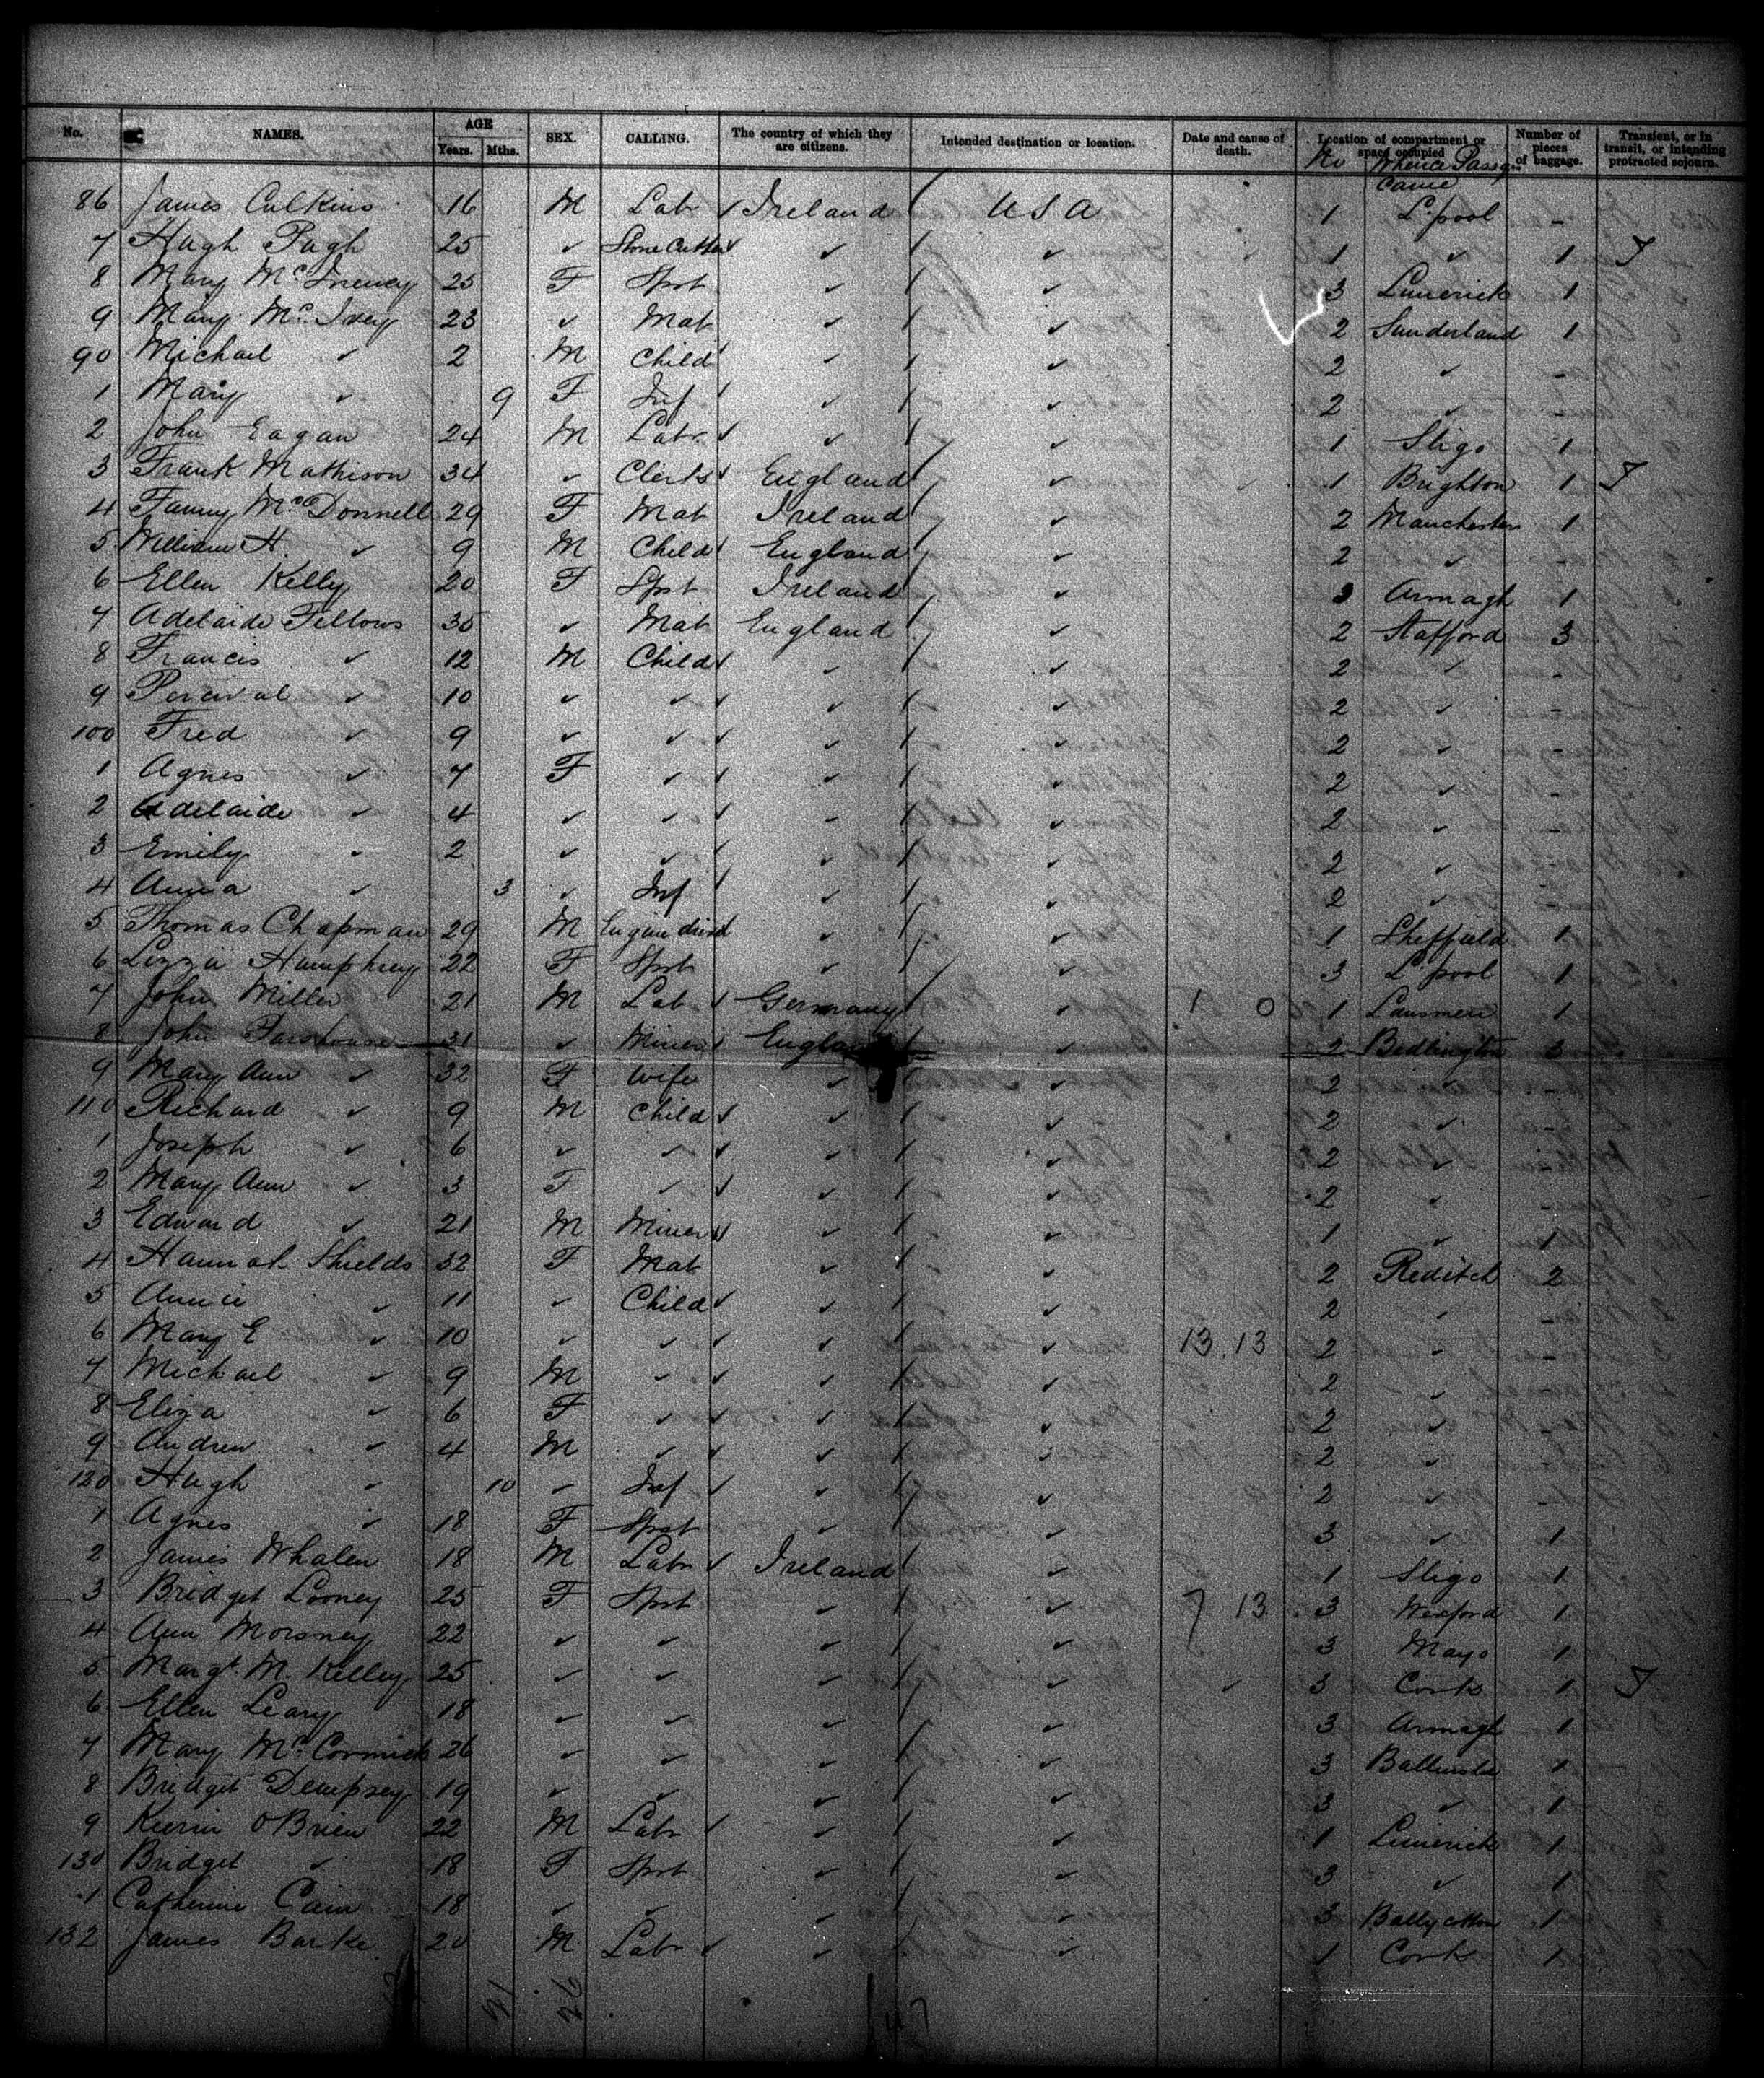 No. NAMES. AGE Years. Mths. SEX. CALLING. The country of which they are citizens. Intended destination or location. Date and cause of death. Location of compartment or space occupied Number of pieces of baggage. Transient, or in transit, or intending protracted sojourn.
No Whence Passgrs came
86 James Culkins 16 M Labr Ireland USA 1 L'pool -
7 Hugh Pugh 25 ✓ Stone Cutter ✓ ✓ 1 ✓ 1
8 Mary McInerney 25 F Spst ✓ ✓ 3 Limerick 1
9 Mary McIvey 23 ✓ Mat ✓ ✓ 2 Sunderland 1
90 Michael ✓ 2 M Child ✓ ✓ 2 ✓ -
1 Mary ✓ 9 F Inf ✓ ✓ 2 ✓ -
2 John Eagan 24 M Labr ✓ ✓ 1 Sligo 1
3 Frank Mathison 34 ✓ Clerk England ✓ 1 Brighton 1
4 Fanny McDonnell 29 F Mat Ireland ✓ 2 Manchester 1
5 William H. ✓ 9 M Child England ✓ 2 ✓ -
6 Ellen Kelly 20 F Spst Ireland ✓ 3 Armagh 1
7 Adelaide Fellows 35 ✓ Mat England ✓ 2 Stafford 3
8 Francis ✓ 12 M Child ✓ ✓ 2 ✓ -
9 Percival ✓ 10 ✓ ✓ ✓ ✓ 2 ✓ -
100 Fred ✓ 9 ✓ ✓ ✓ ✓ 2 ✓ -
1 Agnes ✓ 7 F ✓ ✓ ✓ 2 ✓ -
2 Adelaide ✓ 4 ✓ ✓ ✓ ✓ 2 ✓ -
3 Emily ✓ 2 ✓ ✓ ✓ ✓ 2 ✓ -
4 Anna ✓ 3 ✓ Inf ✓ ✓ 2 ✓ -
5 Thomas Chapman 29 M Engine driver ✓ ✓ 1 Sheffield 1
6 Lizzie Humphrey 22 F Spst ✓ ✓ 3 L'pool 1
7 John Miller 21 M Lab Germany ✓ 1 0 1 1
8 John 31 ✓ Miner England ✓ 2 Bedlington 3
9 Mary Ann ✓ 32 F Wife ✓ ✓ 2 ✓ -
110 Richard ✓ 9 M Child ✓ ✓ 2 ✓ -
1 Joseph ✓ 6 ✓ ✓ ✓ ✓ 2 ✓ -
2 Mary Ann ✓ 3 F ✓ ✓ ✓ 2 ✓ -
3 Edward ✓ 21 M Miner ✓ ✓ 1 ✓ 1
4 Hannah Shields 32 F Mat ✓ ✓ 2 Reditch 2
5 Annie ✓ 11 ✓ Child ✓ ✓ 2 ✓ -
6 Mary E ✓ 10 ✓ ✓ ✓ ✓ 13.13 2 ✓ -
7 Michael ✓ 9 M ✓ ✓ ✓ 2 ✓ -
8 Eliza ✓ 6 F ✓ ✓ ✓ 2 ✓ -
9 Andrew ✓ 4 M ✓ ✓ ✓ 2 ✓ -
120 Hugh ✓ 10 ✓ Inf ✓ ✓ 2 ✓ -
1 Agnes ✓ 18 F Spst ✓ ✓ 3 ✓ 1
2 James Whalen 18 M Labr Ireland ✓ 1 Sligo 1
3 Bridget Looney 25 F Spst ✓ ✓ 7 13 3 Wexford 1
4 Ann 22 ✓ ✓ ✓ ✓ 3 Mayo 1
5 Margt. M. Kelley 25 ✓ ✓ ✓ ✓ 3 Cork 1
6 Ellen Leary 18 ✓ ✓ ✓ ✓ 3 Armagh 1
7 Mary McCormick 26 ✓ ✓ ✓ ✓ 3 1
8 Bridget Dempsey 19 ✓ ✓ ✓ ✓ 3 ✓ 1
9 O'Brien 22 M Labr ✓ ✓ 1 Limerick 1
130 Bridget ✓ 18 F Spst ✓ ✓ 3 ✓ 1
1 Catherine Cain 18 ✓ ✓ ✓ ✓ 3 Ballycotton 1
132 James Barke 20 M Labr ✓ ✓ 1 Cork 1